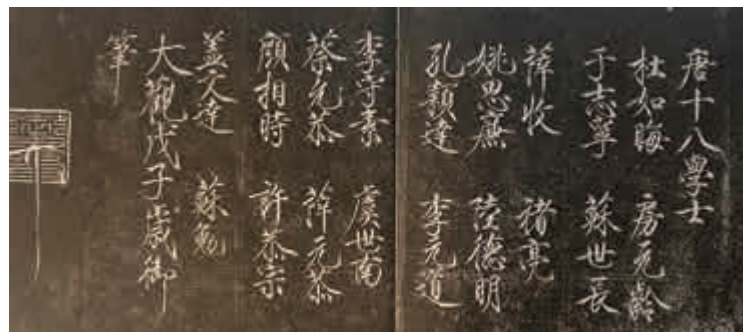 唐十八學士
杜如晦 房元齡
于志寧 蘇世長
薛收 褚亮
姚思廉 陸德明
孔穎達 李元道
李守素 虞世南
蔡元恭 薛元恭
顏相時 許恭宗
蓋文達 蘇勉
大觀戊子歲御
筆